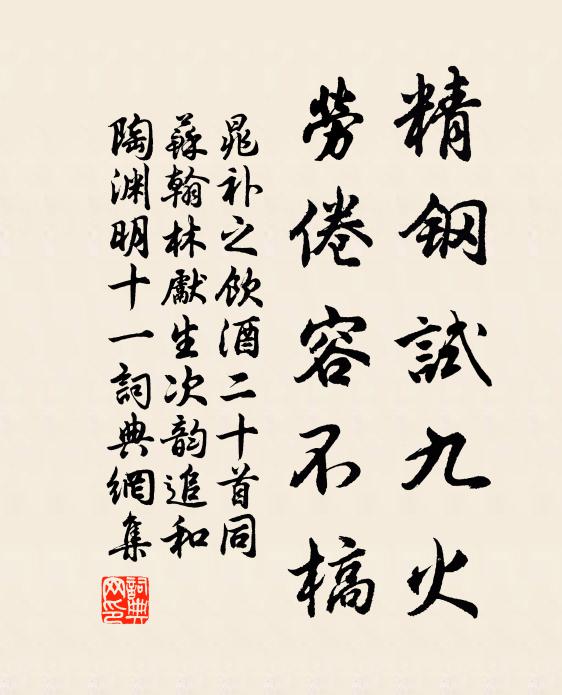 精鋼試九火
勞倦容不槁
晁补之飲酒二十首同
蘇翰林獻生次韵追和
陶渊明十一詞典網集
詞典網印